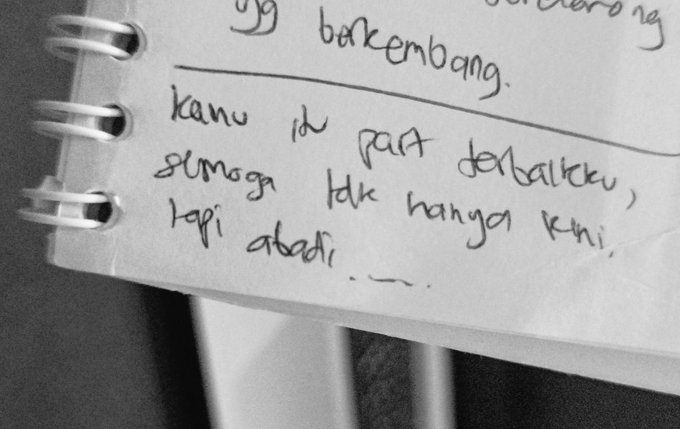 yg berkembang.
kamu itu part terbaikku,
semoga tdk hanya kini,
tapi abadi